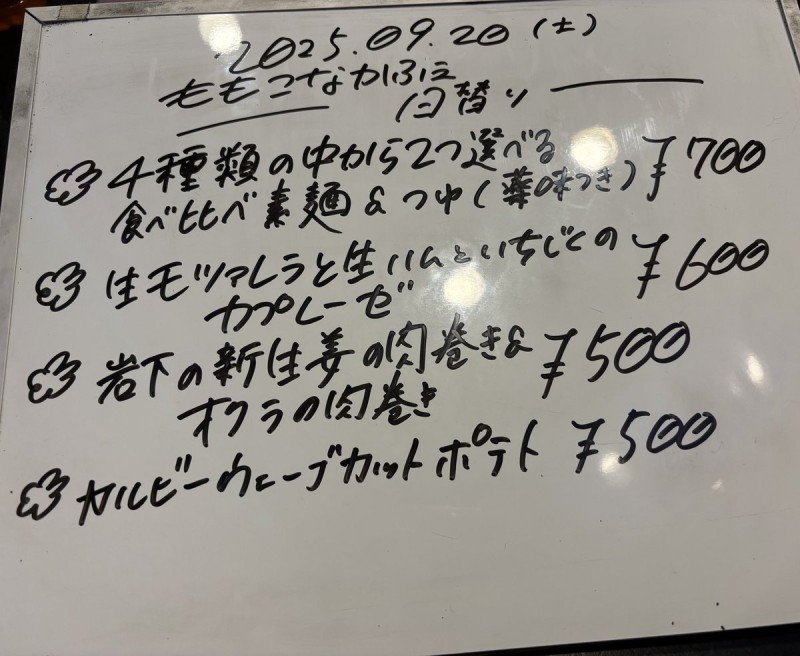 2025.09.20(土)
ももこなかふぇ
日替り
4種類の中から2つ選べる
食べ比べ素麺&つゆ(薬味つき) ¥700
生モツァレラと生ハムといちじくの
カプレーゼ ¥600
岩下の新生姜の肉巻き&
オクラの肉巻き ¥500
カルビーウェーブカットポテト ¥500